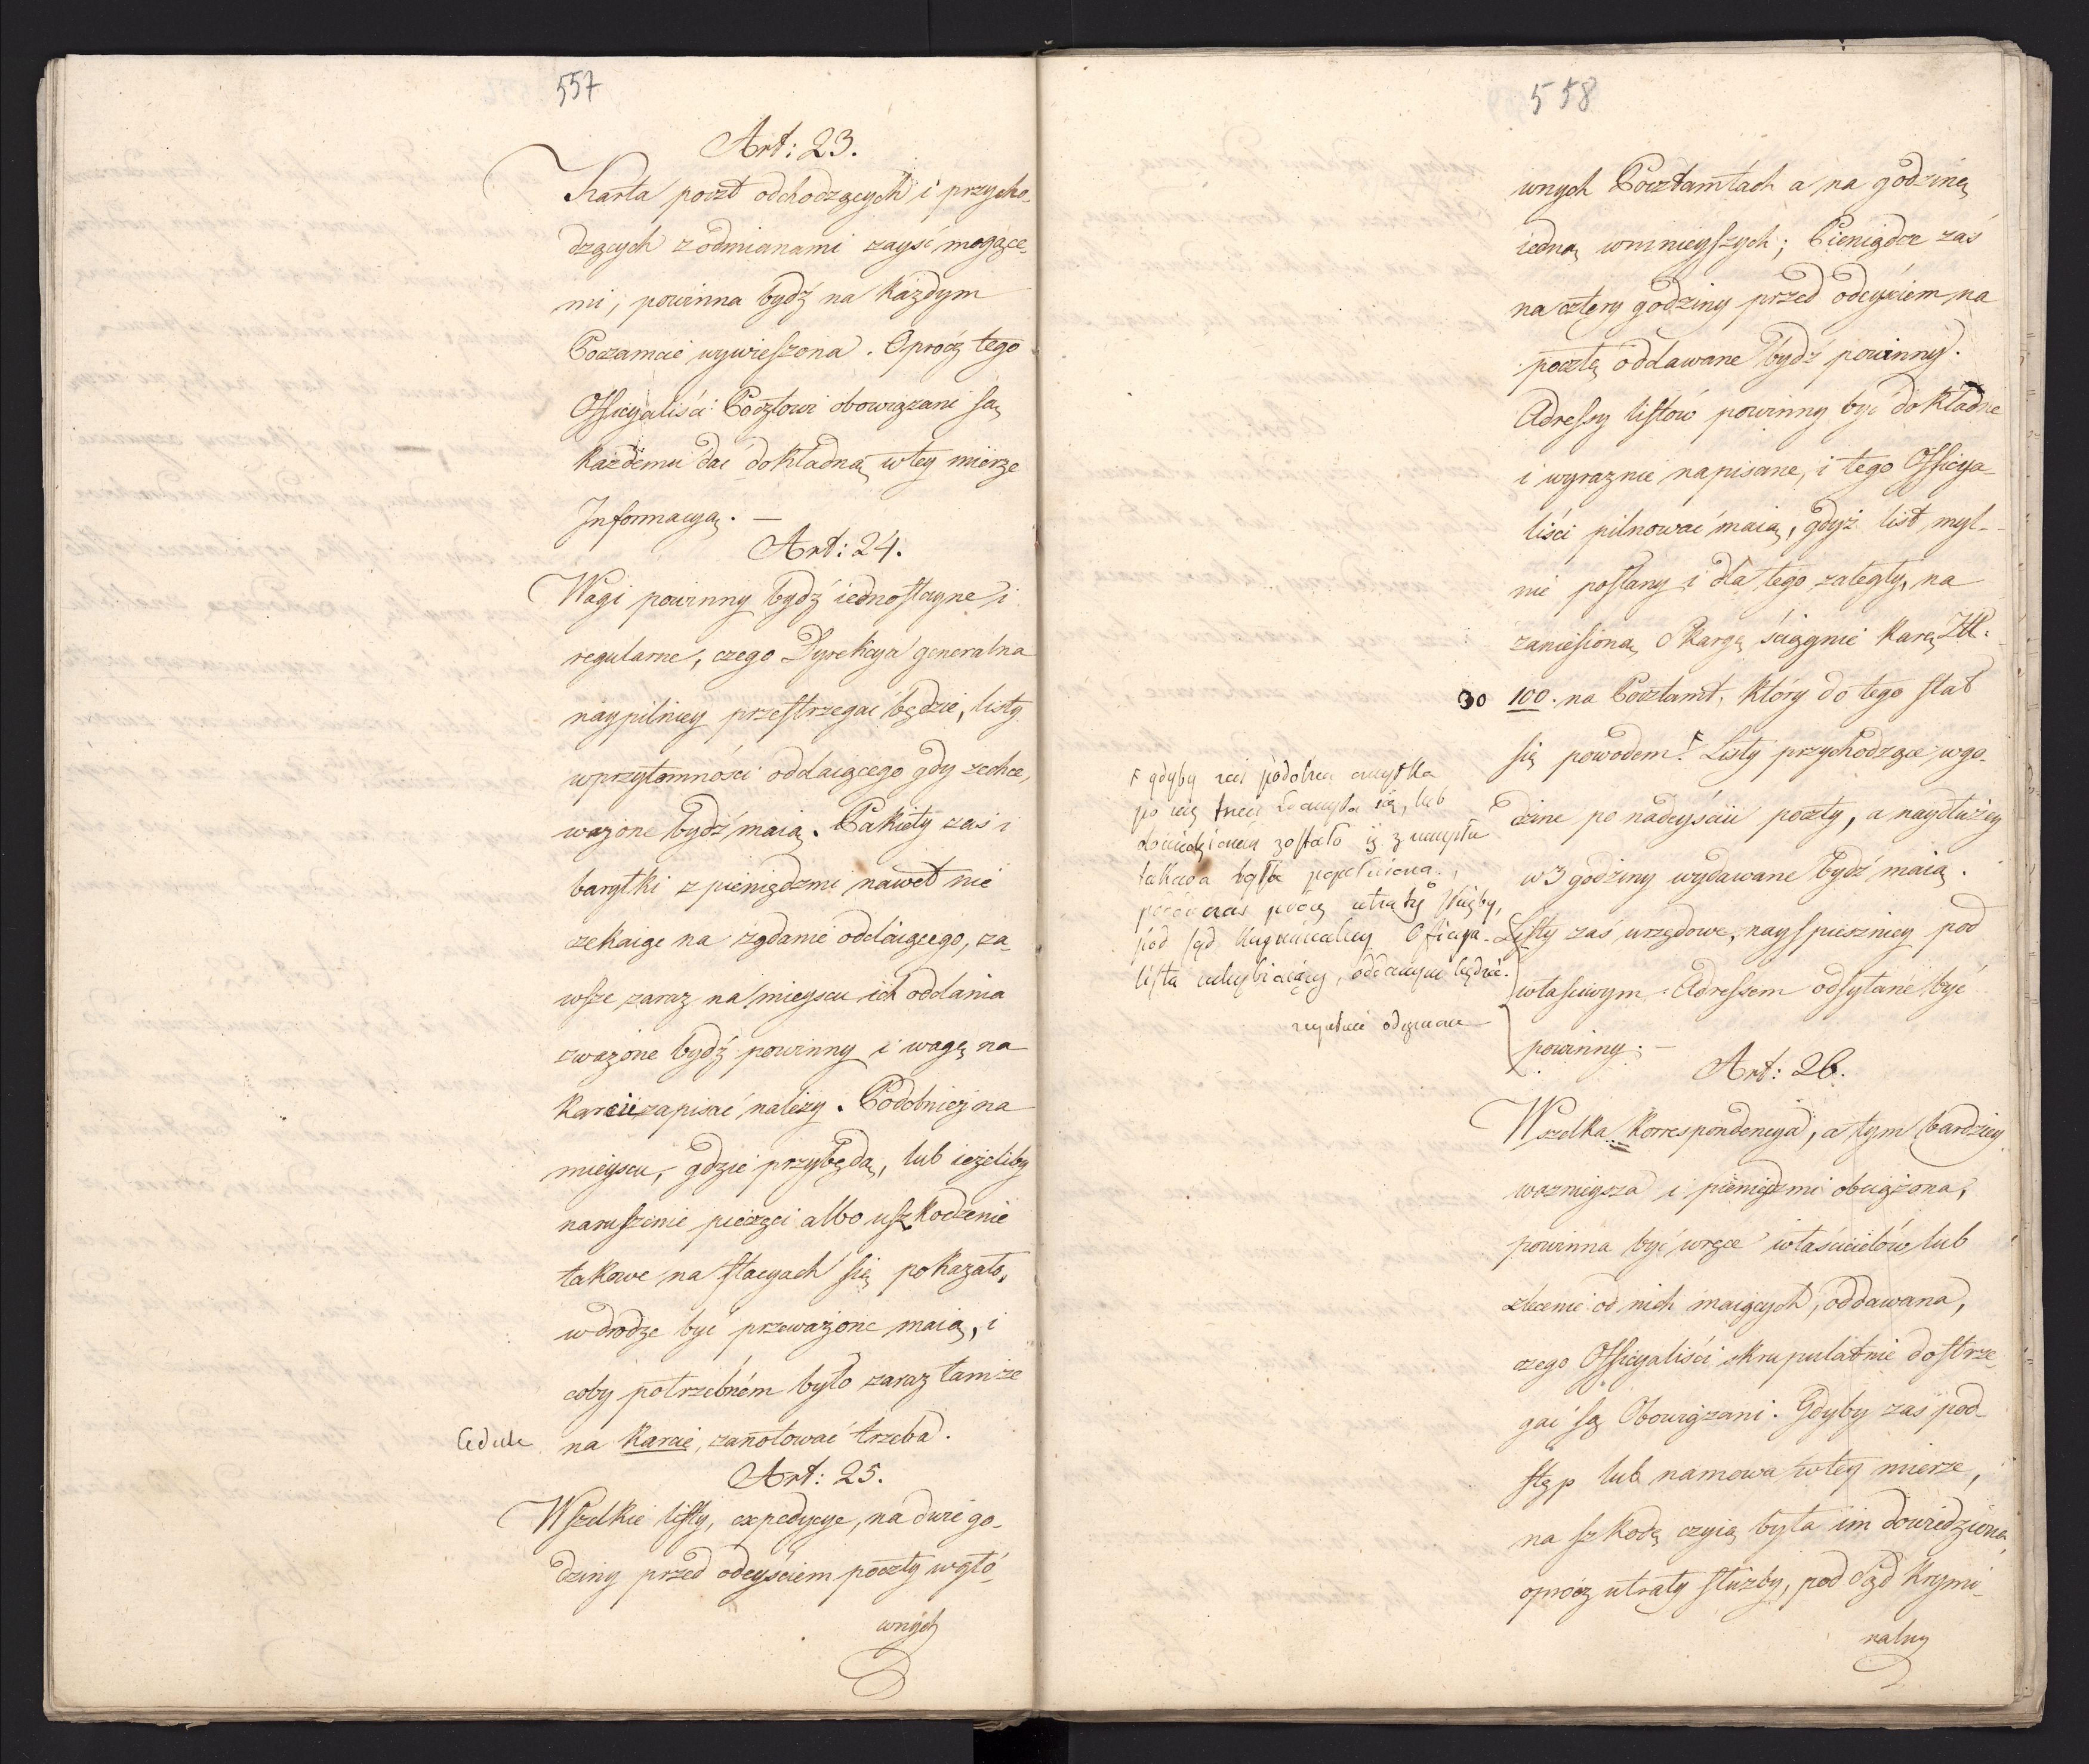 557
Art: 23.
Karta poczt odchodzących i przycho-
dzących z odmianami zayść mogące-
mi, powinna bydź na każdym
Poczamcie wywieszona. Oprócz tego
Officyaliści Pocztowi obowiązani są
każdemu dać dokładną w tey mierze
Informacyą. —
Art: 24.
Wagi powinny bydź iednostayne i
regularne, czego Dyrekcya generalna
naypilniey przestrzegać będzie, listy
w przytomności oddaiącego gdy zechce,
ważone bydź maią. Pakiety zaś i
baryłki z pieniędzmi nawet nie
czekaiąc na żądanie oddaiącego, za-
wsze zaraz na mieyscu ich oddania
zważone bydź powinny i wagę na
karcie zapisać należy. Podobnież na
mieyscu, gdzie przybędą, lub ieżeliby
naruszenie pieczęci albo uszkodzenie
takowe na stacyach się pokazało,
w drodze być przeważone maią, i
coby potrzebném było zaraz tamże
Cedule na karcie, zanotować trzeba.
Art: 25.
Wszelkie listy, expedycye, na dwie go-
dziny przed odeyściem poczty w głó-
wnych
558
wnych Pocztamtach a na godzinę
iedną w mnieyszych; Pieniądze zaś
na cztery godziny przed odeyściem na
pocztę oddawane bydź powinny.
Adressy listów powinny być dokładne
i wyraznie napisane, i tego Officya-
liści pilnować maią, gdyż list myl-
nie posłany i dla tego zaległy, na
zaniesioną Skargę ściągnie karę Zł:
30 100. na Pocztamt, który do tego stał
się powodem. F Listy przychodzące w go-
dzinę po nadeyściu poczty, a naydłużey
w 3 godziny wydawane bydź maią.
Listy zaś urzędowe, nayspieszniey pod
właściwym Adressem odsyłane być
powinny. —
F gdyby zaś podobna omyłka
po raz trzeci się, lub
zostało iż z umysłu
takowa była popełniona,
utraty służby,
pod sąd kryminalny Officya-
lista uchybiaiący, oddanym będzie.
Art: 26.
Wszelka korrespondencya, a tym bardziey
ważnieysza i pieniędzmi obciążona,
powinna być w ręce właścicielów lub
zlecenie od nich maiących, oddawana,
czego Officyaliści skrupulatnie dostrze-
gać są Obowiązani. Gdyby zaś pod-
stęp lub namowa w tey mierze,
na szkodę czyią była im dowiedziona,
oprócz utraty służby, pod Sąd krymi-
nalny